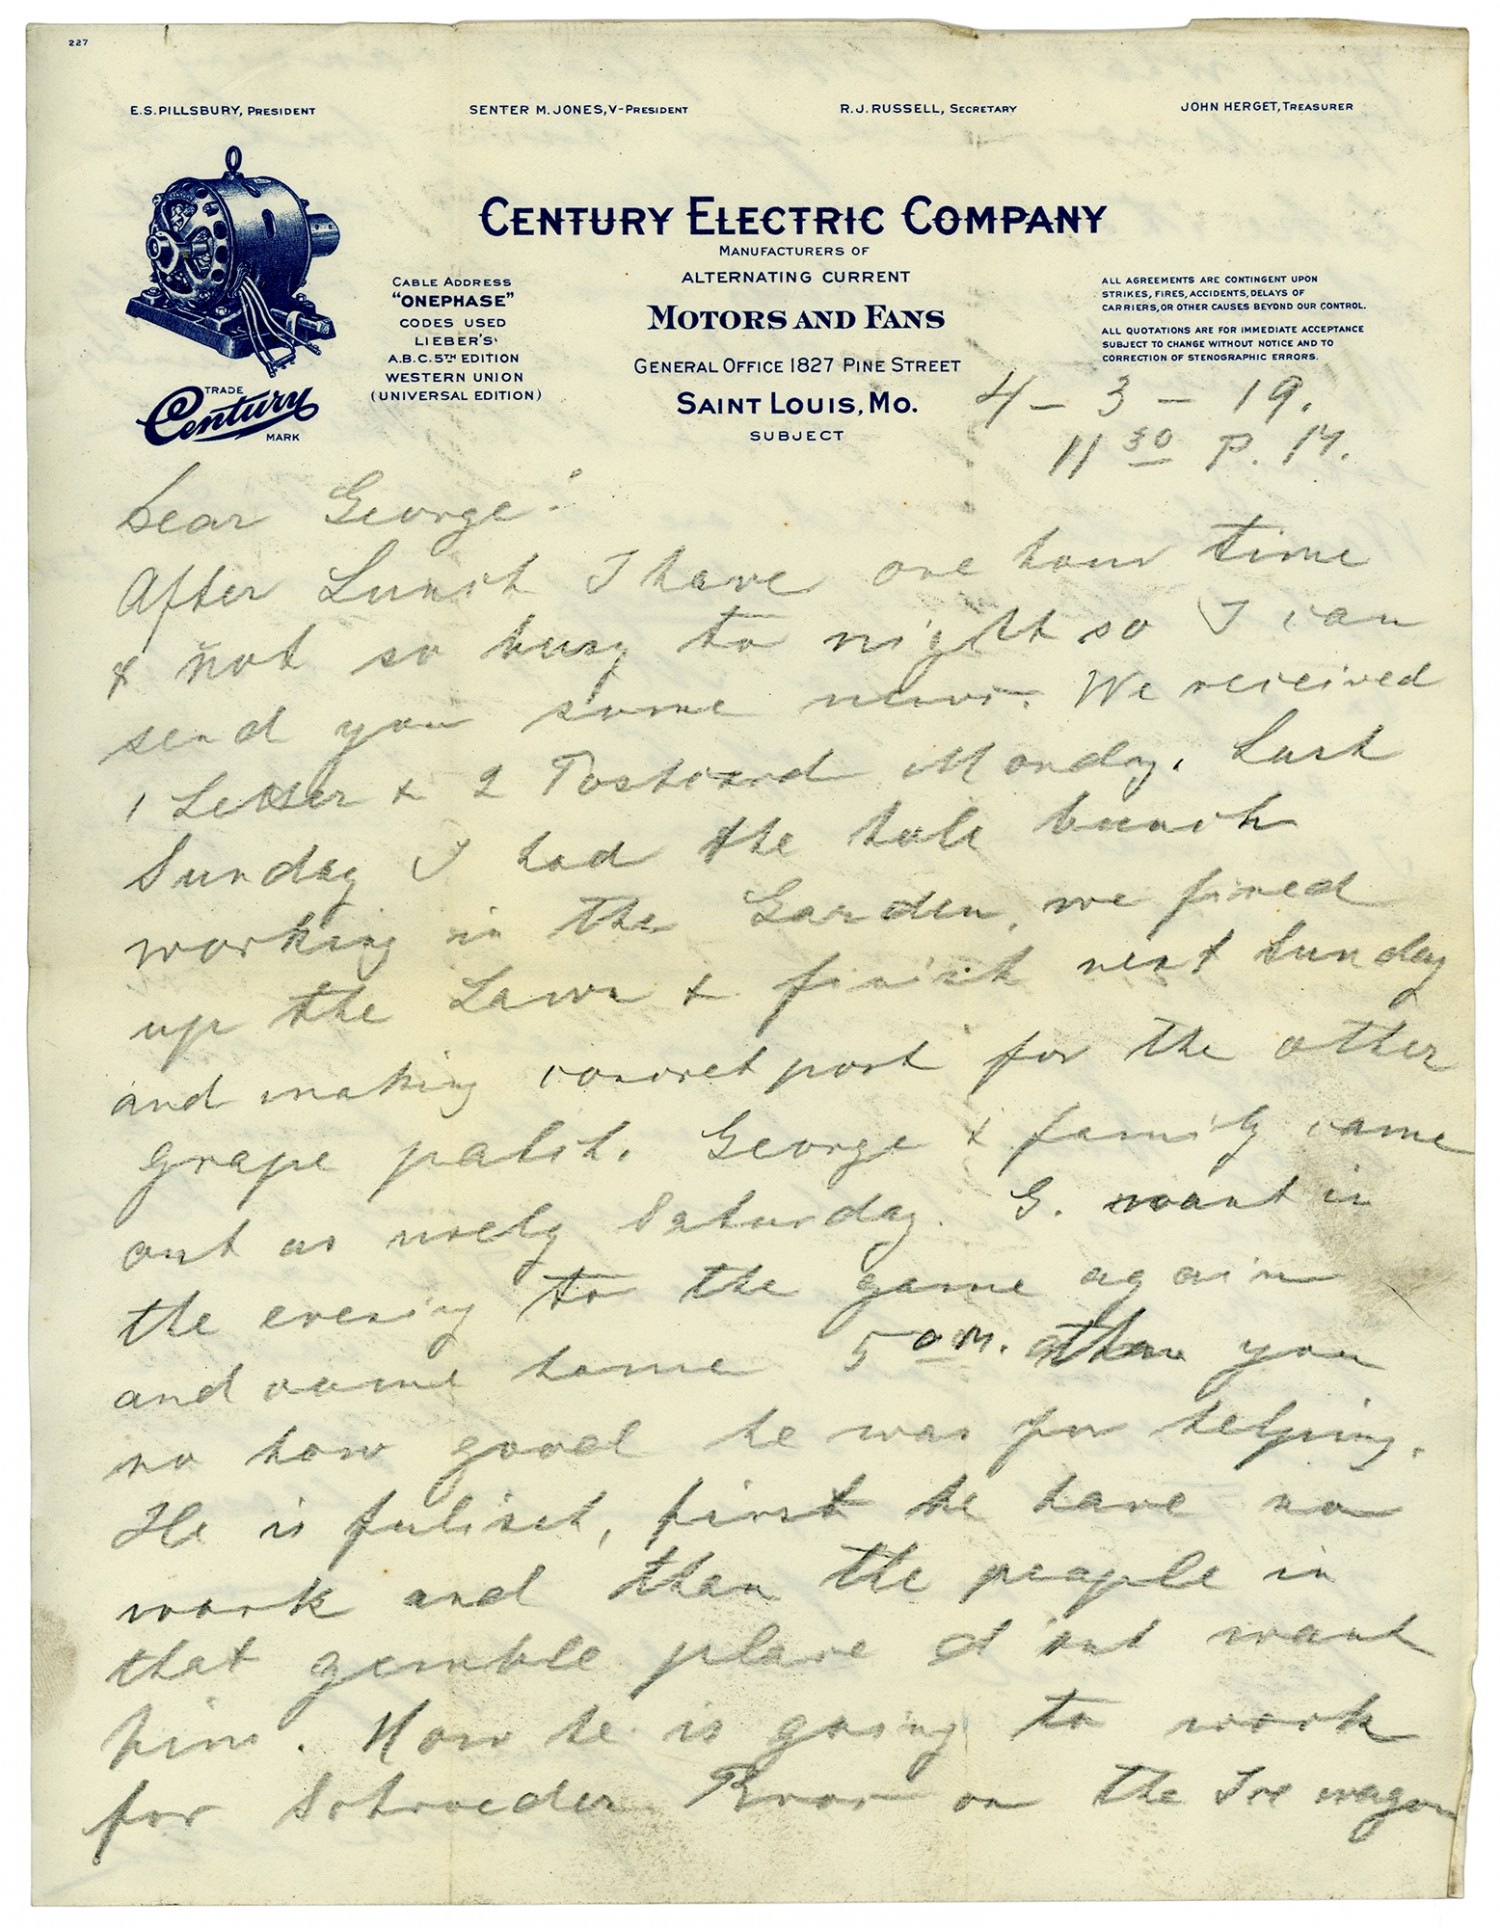 227
E.S. PILLSBURY, PRESIDENT SENTER M. JONES, V-PRESIDENT R.J. RUSSELL, SECRETARY JOHN HERGET, TREASURER
CENTURY ELECTRIC COMPANY
MANUFACTURERS OF
ALTERNATING CURRENT
MOTORS AND FANS
GENERAL OFFICE 1827 PINE STREET
SAINT LOUIS, MO.
SUBJECT
CABLE ADDRESS
"ONEPHASE"
CODES USED
LIEBER'S
A.B.C. 5TH EDITION
WESTERN UNION
(UNIVERSAL EDITION)
TRADE
Century
MARK
ALL AGREEMENTS ARE CONTINGENT UPON
STRIKES, FIRES, ACCIDENTS, DELAYS OF
CARRIERS, OR OTHER CAUSES BEYOND OUR CONTROL.
ALL QUOTATIONS ARE FOR IMMEDIATE ACCEPTANCE
SUBJECT TO CHANGE WITHOUT NOTICE AND TO
CORRECTION OF STENOGRAPHIC ERRORS.
4 - 3 - 19.
11 30 P. M.
Dear George:
After Lunch I have one hour time
& not so busy to night so I can
send you some news. We received
1 Letter & 2 Postcard Monday. Last
Sunday I had the hole bunch
working in the Garden, we fixed
up the Lawn & finish next Sunday
and making concret post for the other
grape patch. George & family came
out as usely Saturday. G. want in
the evening to the game again
and came home 5 a.m. than you
no how good he was for helping.
He is fulish, first he have no
work and than the people in
that gemble place d'ont want
him. Now he is going to work
for Schroeder Bros on the Ice wagon